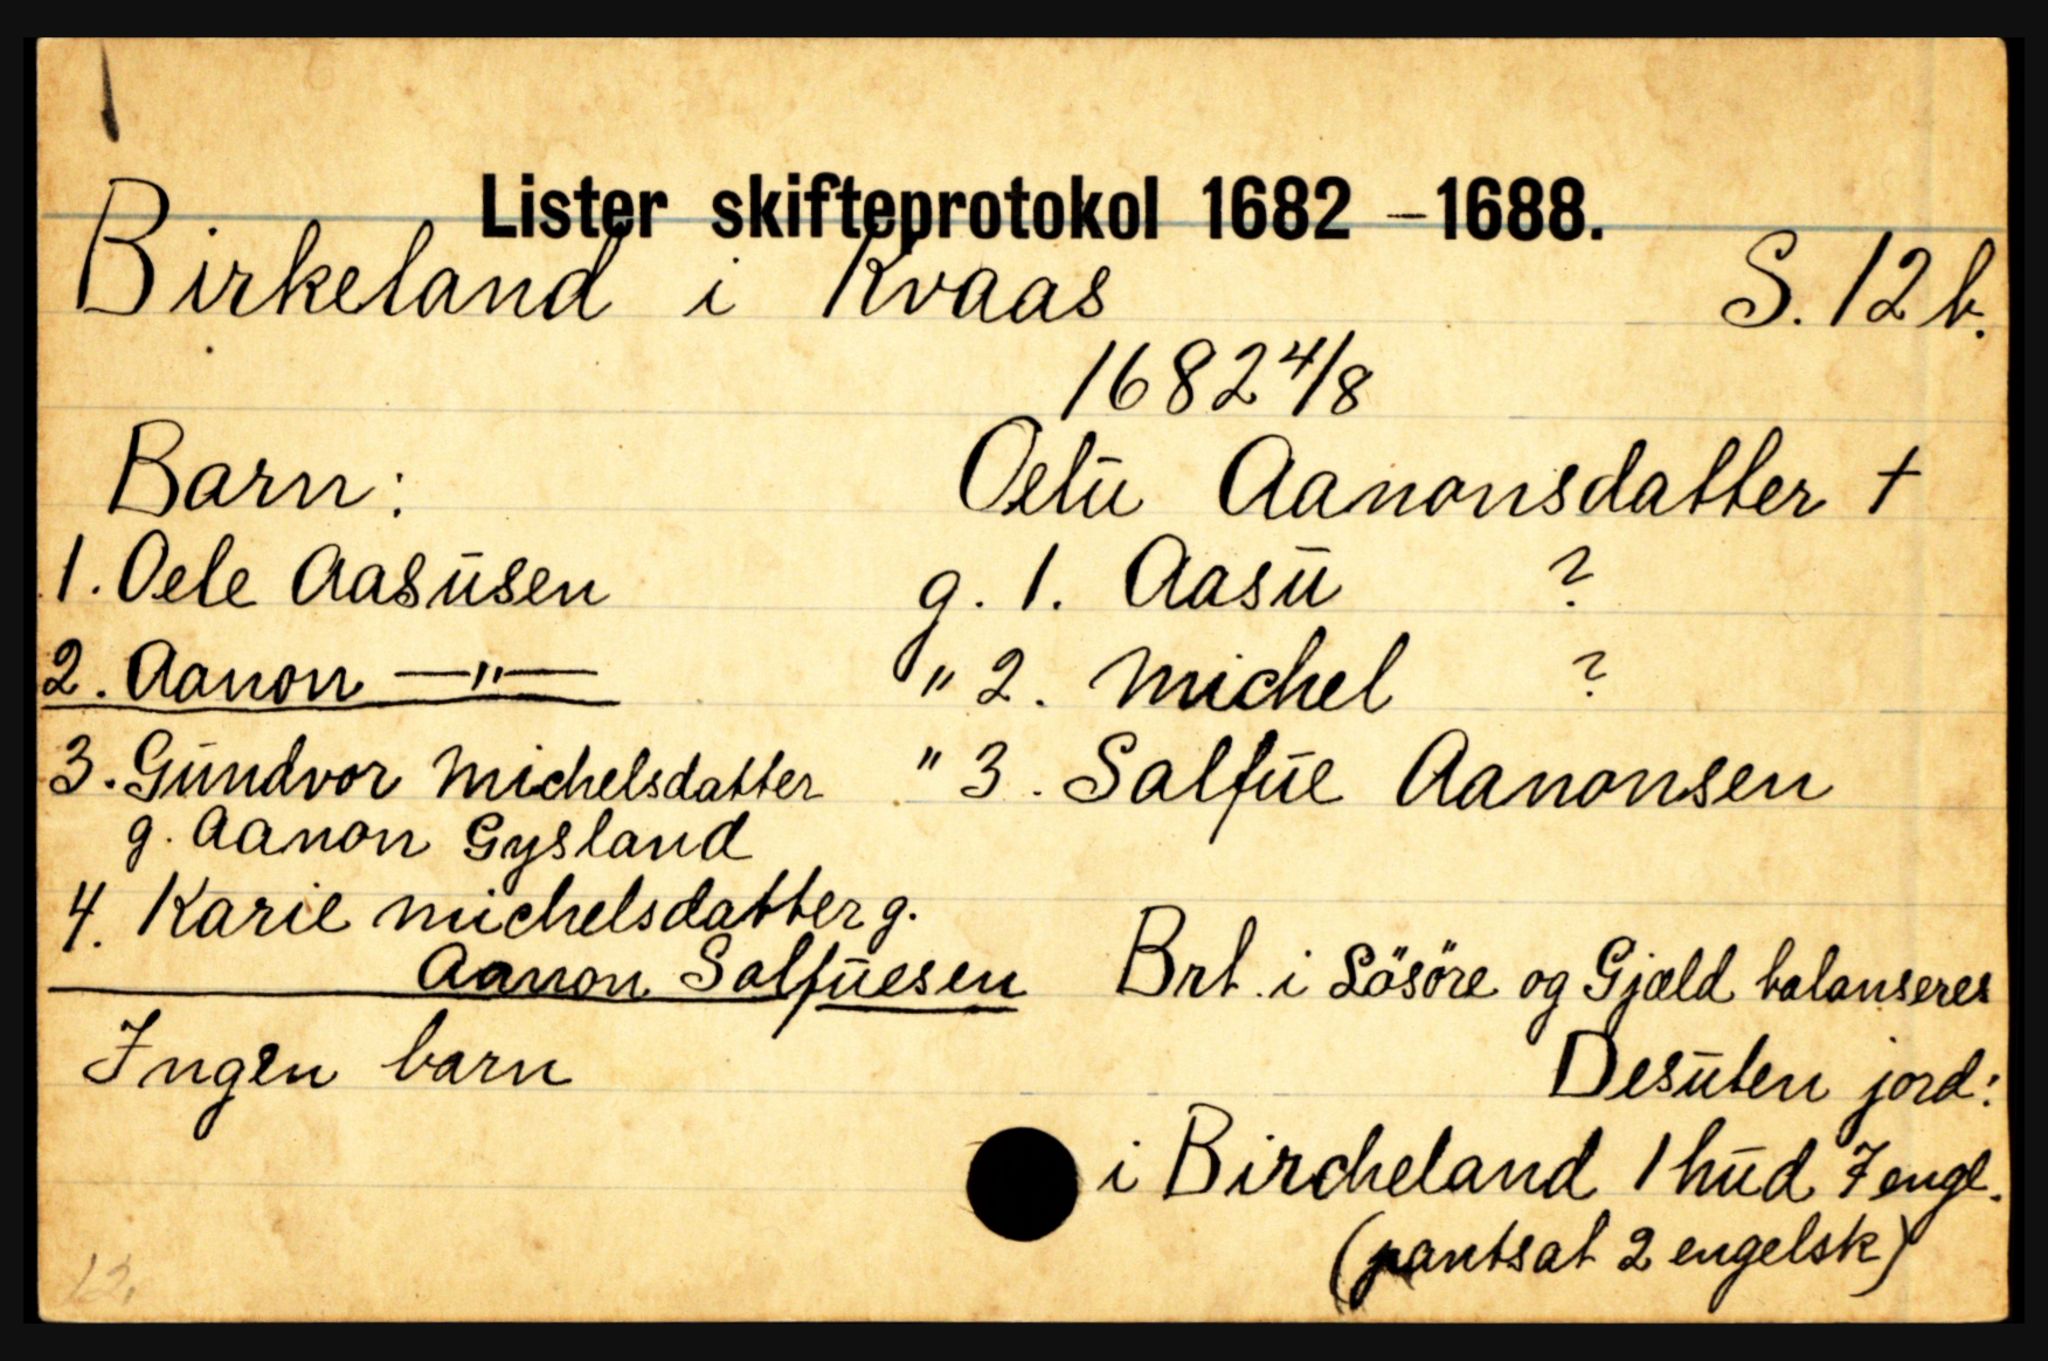 Lister skifteprotokol 1682 – 1688.
Birkeland i Kvaas S. 12 b.
1682 4/8
Barn: Oelu Aanonsdatter †
1. Oele Aasusen g. 1. Aasu ?
2. Aanon —"— " 2. Michel ?
3. Gundvor Michelsdatter " 3. Salfue Aanonsen
g. Aanon Gysland
4. Karie Michelsdatter g.
Aanon Salfuesen Brt. i Lösöre og Gjæld balanseres
Ingen barn Desuten jord:
i Bircheland 1 hud 7 engl.
(pantsat 2 engelsk)
12.